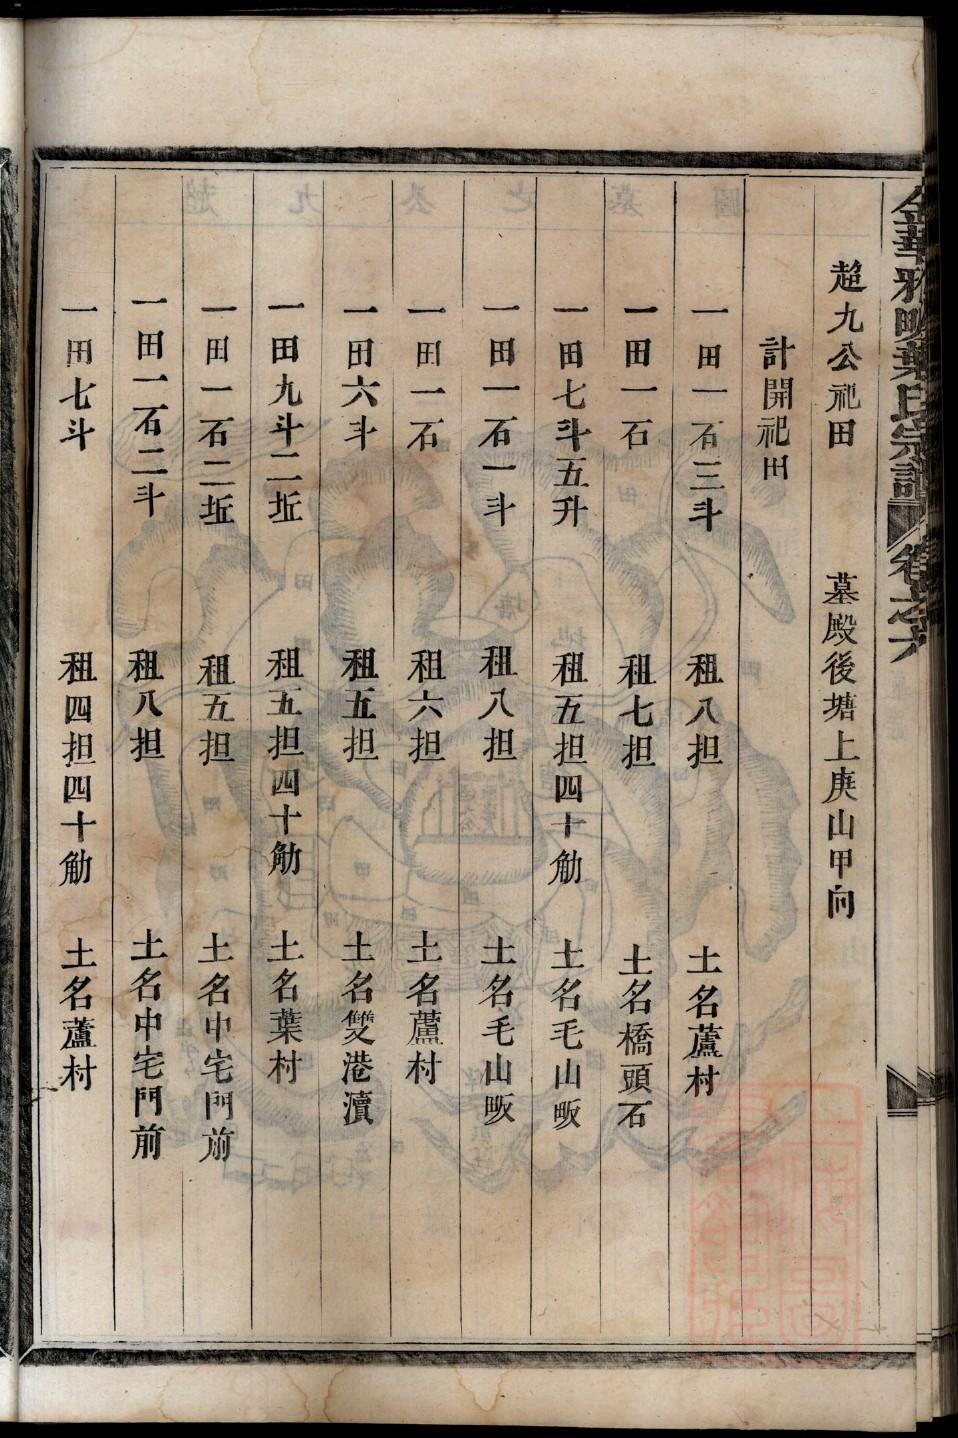 金華雅畈葉氏宗譜 卷之六
超九公祀田 墓殿後塘上庚山甲向
計開祀田
一田一石三斗 租八担 土名蘆村
一田一石 租七担 土名橋頭石
一田七斗五升 租五担四十觔 土名毛山畈
一田一石一斗 租八担 土名毛山畈
一田一石 租六担 土名蘆村
一田六斗 租五担 土名雙港瀆
一田九斗二坵 租五担四十觔 土名葉村
一田一石二坵 租五担 土名中宅門前
一田一石二斗 租八担 土名中宅門前
一田七斗 租四担四十觔 土名蘆村